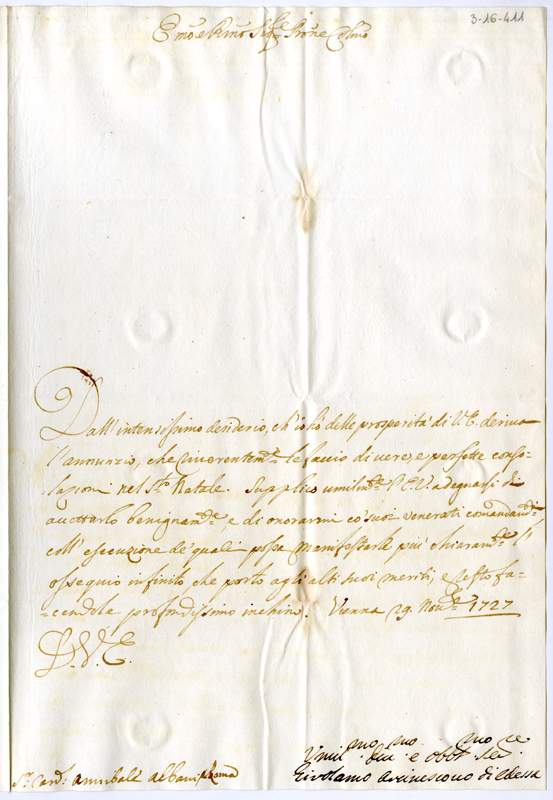 3-16-411
Emo e Rmo Sigre Prone Colmo
Dall' intensissimo desiderio, ch' io hò delle prosperità di V.E. deriva
l'annunzio, che riverentemte le faccio di vere, e perfette conso-
-lazioni nel Sto Natale. Supplico umilmte l'E.V. a degnarsi di
accettarlo benignamte, e di onorarmi co' suoi venerati comandamti
coll' esecuzione de' quali possa manifestarle più chiaramte l'
ossequio infinito che porto agli alti suoi meriti, e resto fa-
-cendole profondissimo inchino. Vienna 29. Novre 1727
D.V.E.
Sr Card: Annibale Albani Roma
Umilmo Divmo e obbmo Sere
Girolamo Arcivescovo di Edessa